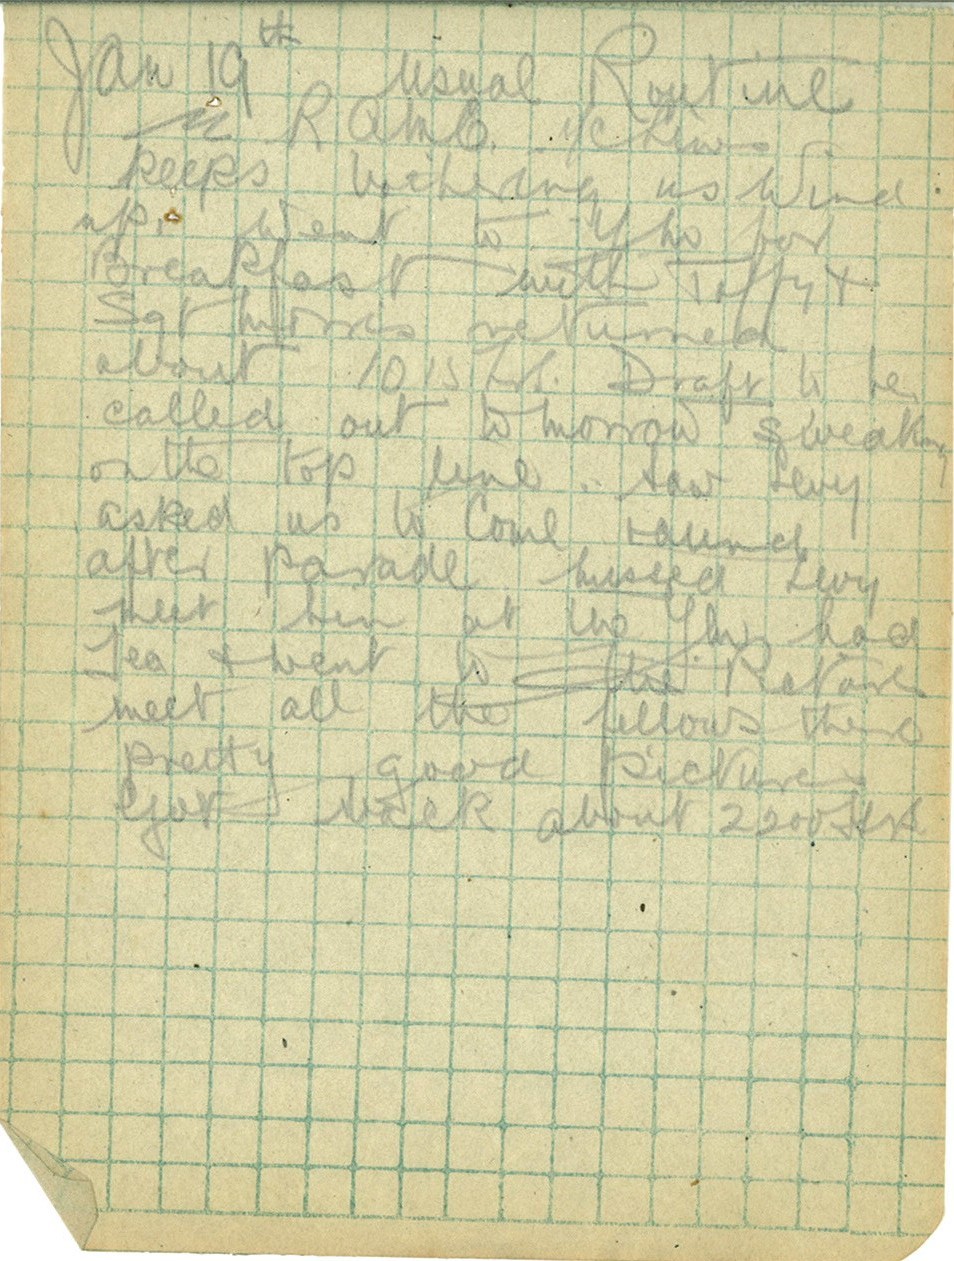 Jan 19th usual Routine
R.A.M.C.
keeps us wind
up. went to Y for
Breakfast with Taffy &
Sgt Morris returned
about 1015 hrs. Draft to be
called out tomorrow sweaking
on the top line. Saw Levy
asked us to come round
after parade missed Levy
meet him at the Y had
Tea & went to the Picture
meet all the fellows there
pretty good Pictures
Got back about 2200 Hrs